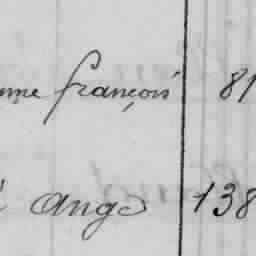 françois 81
Ange 138